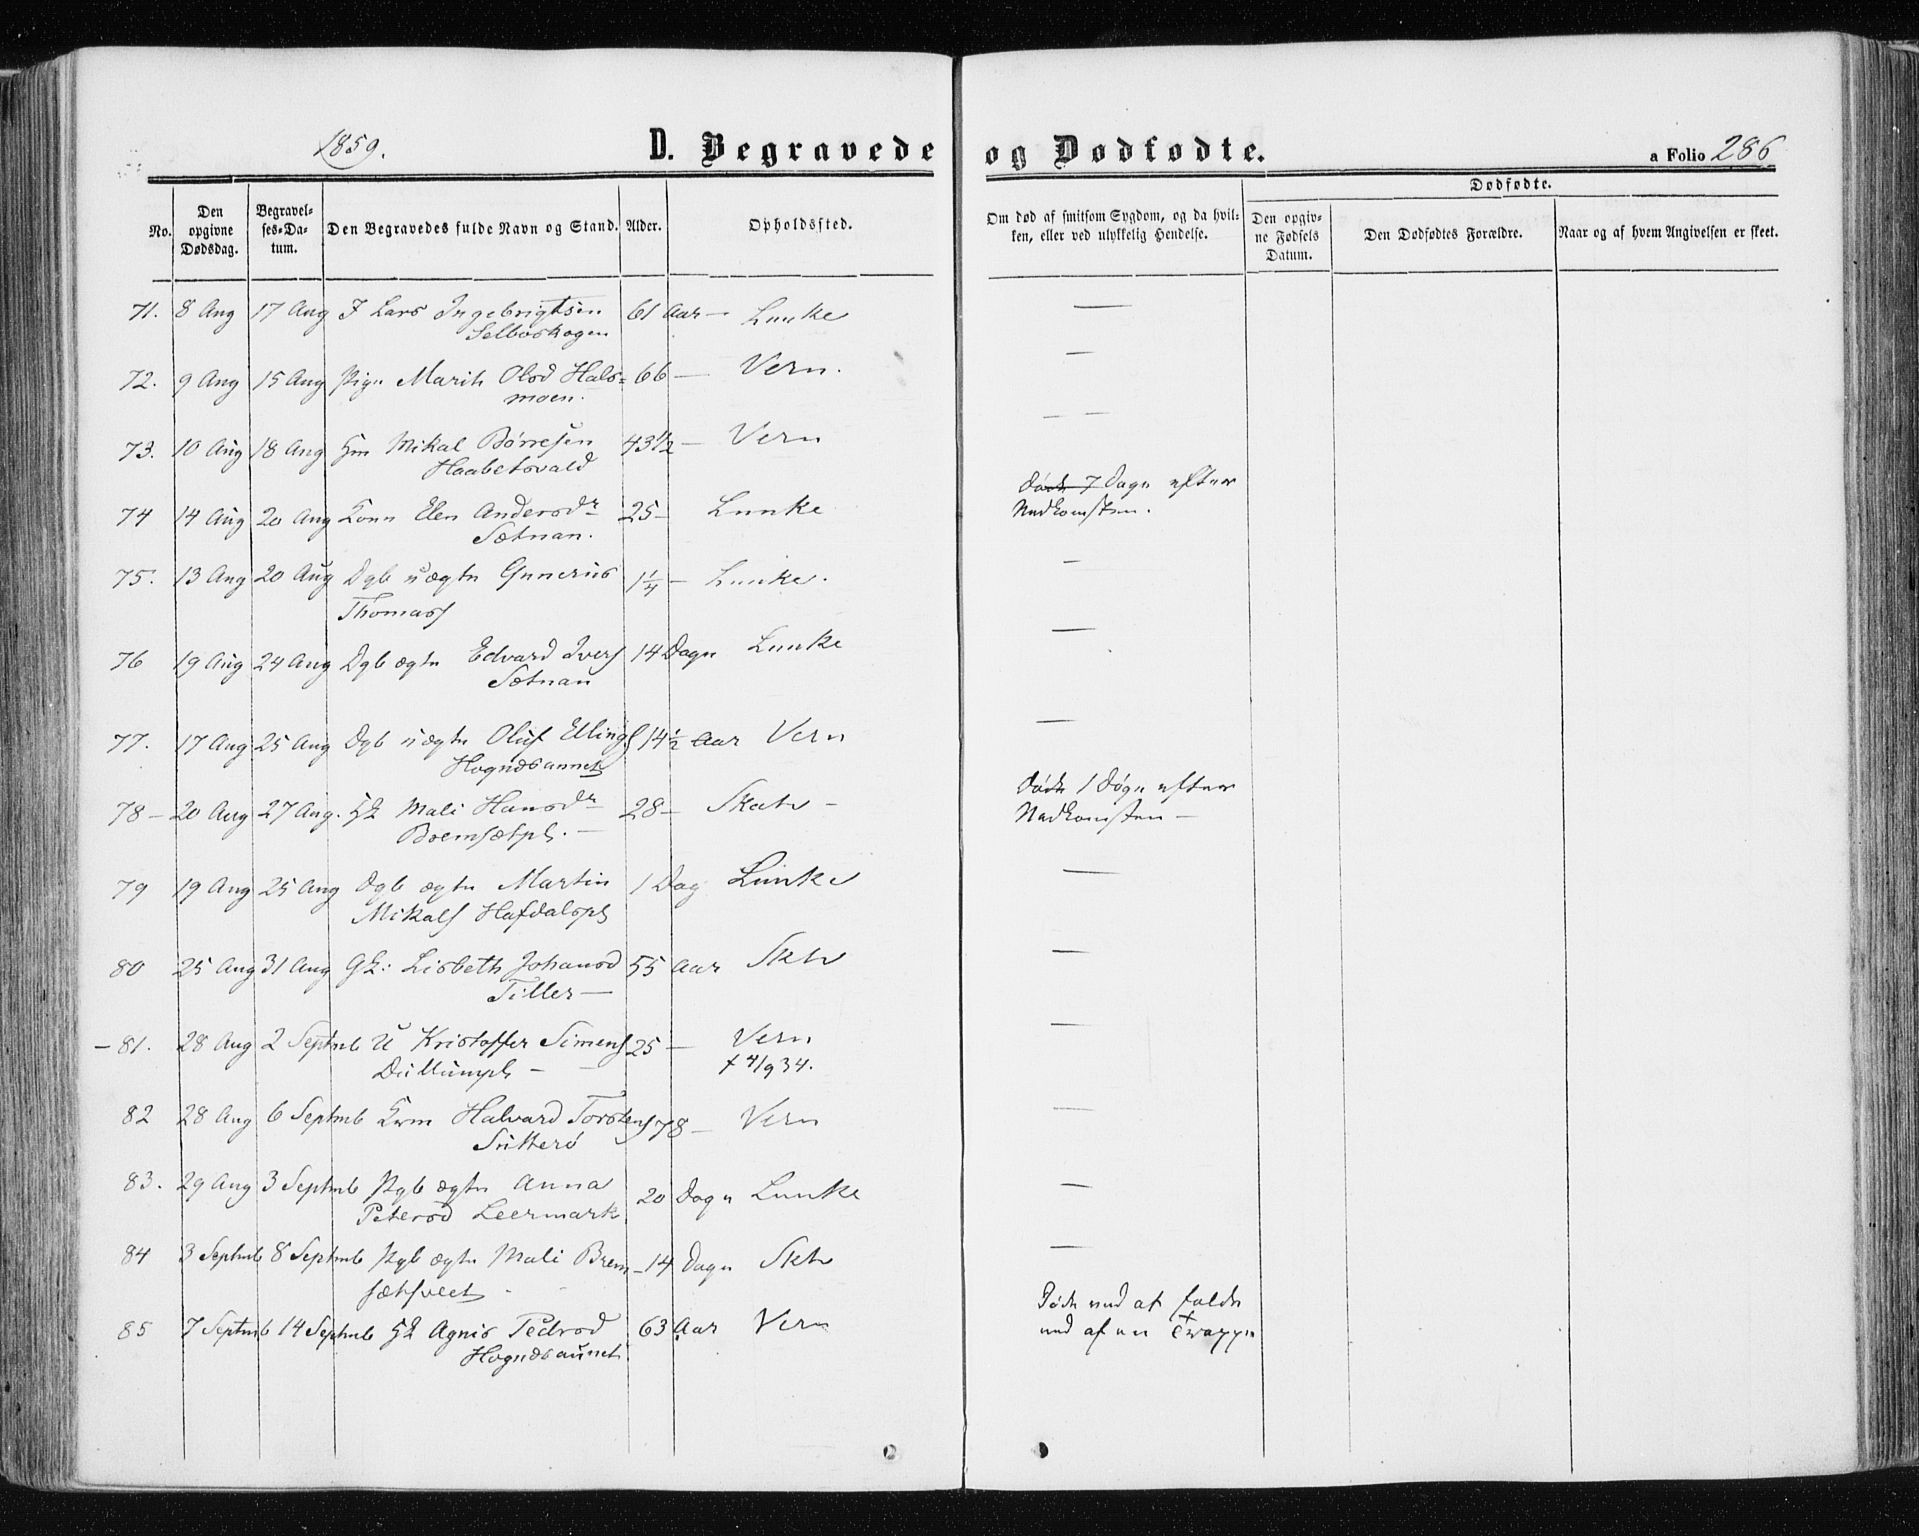 1859.
D. Begravede og Dødfødte.
a Folio 286
No.
Den opgivne Dødsdag.
Begravelses-Datum.
Den Begravedes fulde Navn og Stand.
Alder.
Opholdssted.
Om død af smitsom Sygdom, og da hvilken, eller ved ulykkelig Hendelse.
Dødfødte.
Den opgivne Fødsels Datum.
Den Dødfødtes Forældre.
Naar og af hvem Angivelsen er skeet.
71. 8 Aug 17 Aug I Lars Ingebrigtsen 61 Aar — Lunke —
Selboskogen
72. 9 Aug 15 Aug Pige Marit Olsd Hals= 66 — Vern. —
moen.
73. 10 Aug 18 Aug Gm Mikal Børresen 43½ — Vern — —
Haabetsvald
74 14 Aug 20 Aug Kone Elen Andersdr 25 — Lunke døde 7 Dage efter
Sætnan. Nedkomsten.
75. 13 Aug 20 Aug Dgb uægte Gunerius 1¼ — Lunke. —
Thomass
76 19 Aug 24 Aug Dgb ægte Edvard Ivers 14 Dage Lunke —
Sætnan
77. 17 Aug 25 Aug Dgb uægte Oluf Ellings 14½ Aar Vern —
Hognæsaunet
78 — 20 Aug 27 Aug. Hansdr 28 — Skatv — døde 1 Døgn efter
Mali
Bremsætpl. — Nedkomsten —
79 19 Aug 25 Aug Dgb ægte Martin 1 Dag Lunke —
Mikals Hafdalspl
80 25 Aug 31 Aug Lisbeth Johansd 55 Aar Sktv —
Tiller —
— 81. 28 Aug 2 Septmb U Kristoffer Simens 25 — Vern —
Dullumpl — — † 4/9 34.
82 28 Aug 6 Septmb Halvard Torstens 78 — Vern —
Sutterø
83. 29 Aug 3 Septmb Pgb ægte Anna 20 Dage Lunke —
Petersd Leermark
84 3 Septmb 8 Septmb Pgb ægte Mali Brem 14 Dage Sktv —
sætsveet
85 7 Septmb 14 Septmb Agnis Pedersd 63 Aar Vern Døde ved at falde
Hognæsaunet. ned af en Trappe